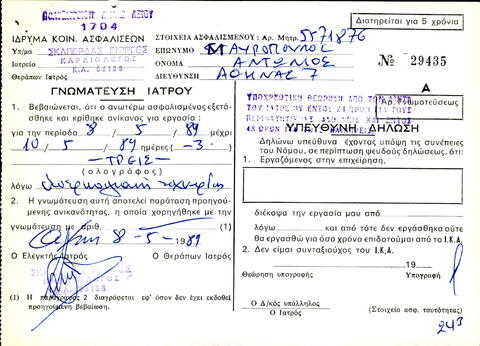 1704
Διατηρείται για 5 χρόνια
ΙΔΡΥΜΑ ΚΟΙΝ. ΑΣΦΑΛΙΣΕΩΝ
ΣΤΟΙΧΕΙΑ ΑΣΦΑΛΙΣΜΕΝΟΥ: Αρ. Μητρ. 5571876
Υπ/μα
ΣΚΑΠΕΡΔΑΣ ΓΙΩΡΓΟΣ
ΕΠΩΝΥΜΟ ΜΑΥΡΟΠΟΥΛΟΣ
Ιατρείο
ΚΑΡΔΙΟΛΟΓΟΣ
ΟΝΟΜΑ ΑΝΤΩΝΙΟΣ
№ 29435
Θεράπων Ιατρός
Κ.Α. 03138
ΔΙΕΥΘΥΝΣΗ ΑΘΗΝΑΣ 7
ΓΝΩΜΑΤΕΥΣΗ ΙΑΤΡΟΥ
Α
1. Βεβαιώνεται, ότι ο ανωτέρω ασφαλισμένος εξετά-
σθηκε και κρίθηκε ανίκανος για εργασία:
για την περίοδο 8 / 5 / 89 μέχρι
10 / 5 / 89 ημέρες (-3-)
-ΤΡΕΙΣ-
(ολογράφος)
λόγω
2. Η γνωμάτευση αυτή αποτελεί παράταση προηγού-
μενης ανικανότητας, η οποία χορηγήθηκε με την
γνωμάτευση με αριθ. (1)
8-5-1989
Ο Ελεγκτής Ιατρός Ο Θεράπων Ιατρός
(1) Η παράγραφος 2 διαγράφεται εφ' όσον δεν έχει εκδοθεί
προηγούμενη βεβαίωση.
ΥΠΟΧΡΕΩΤΙΚΗ ΘΕΩΡΗΣΗ ΑΠΟ
Αρ. Γνωματεύσεως
ΥΠΕΥΘΥΝΗ ΔΗΛΩΣΗ
Δηλώνω υπεύθυνα έχοντας υπόψη τις συνέπειες
του Νόμου, σε περίπτωση ψευδούς δηλώσεως, ότι:
1. Εργαζόμενος στην επιχείρηση,
διέκοψα την εργασία μου από
λόγω και από τότε δεν εργάσθηκα ούτε
θα εργασθώ για όσο χρόνο επιδοτούμαι από το Ι.Κ.Α.
2. Δεν είμαι συνταξιούχος του Ι.Κ.Α.
19
Θεώρηση υπογραφής Υπογραφή
Ο Δ/κός υπάλληλος
Ο Ιατρός
(Στοιχεία ασφ. ταυτότητας)
243